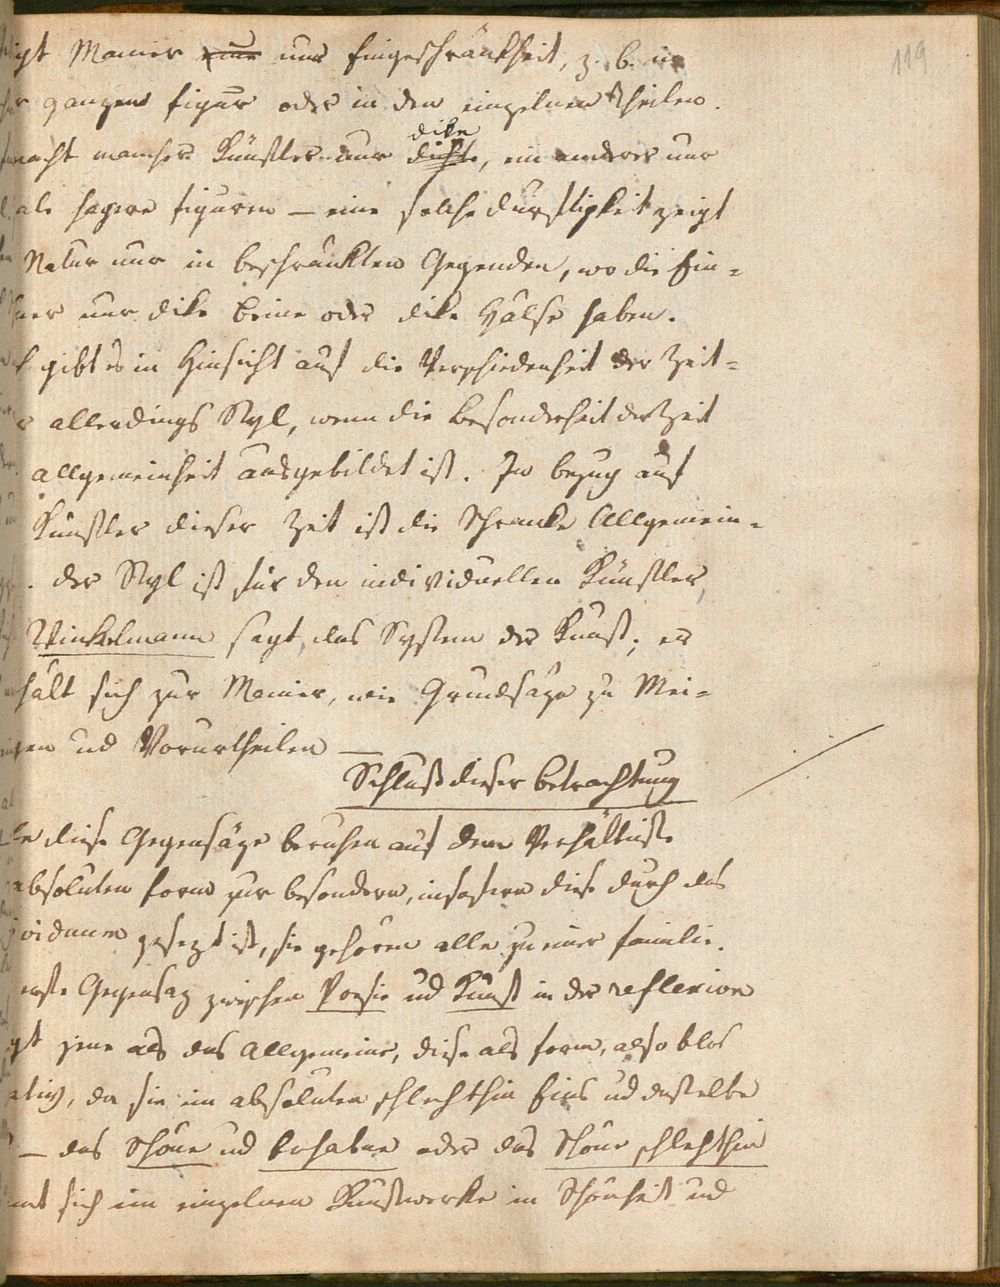 119
igt Manier nur nur Eingeschränktheit, z. b. in
r ganzen Figur oder in den einzelnen Theilen.
macht mancher Künstler nur dike dichte, ein anderer nur
als hagere Figuren — eine solche Durftigkeit zeigt
Natur nur in beschränkten Gegenden, wo die Ein-
ner nur dike Beine oder dike Hälse haben.
h gibt es in Hinsicht auf die Verschiedenheit der Zeit-
r allerdings Styl, wenn die Besonderheit der Zeit
allgemeinheit ausgebildet ist. In bezug auf
Künstler dieser Zeit ist die Schranke Allgemein-
. der Styl ist für den individuellen Künstler,
Winkelmann sagt, das System der Kunst; er
hält sich zur Manier, wie Grundsäze zu Mei-
ngen und Vorurtheilen —
Schluß dieser Betrachtung
le diese Gegensäze beruhen auf dem Verhältniße
absoluten Form zur besondern, insofern diese durch das
ividuum gesezt ist, sie gehören alle zu einer Familie.
erste Gegensaz zwischen Poesie und Kunst in der reflexion
gt jene als das Allgemeine, diese als Form, also blos
ativ, da sie im absoluten schlechthin Eins und dasselbe
— das Schöne und Erhabne oder das Schöne schlechthin
mt sich im einzelnen Kunstwerke in Schönheit und